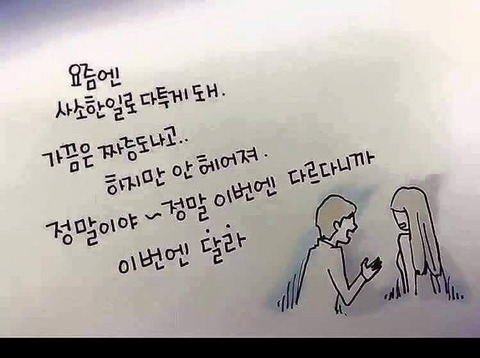 요즘엔
사소한일로 다투게 돼.
가끔은 짜증도나고..
하지만 안 헤어져.
정말이야~정말 이번엔 다르다니까
이번엔 달라